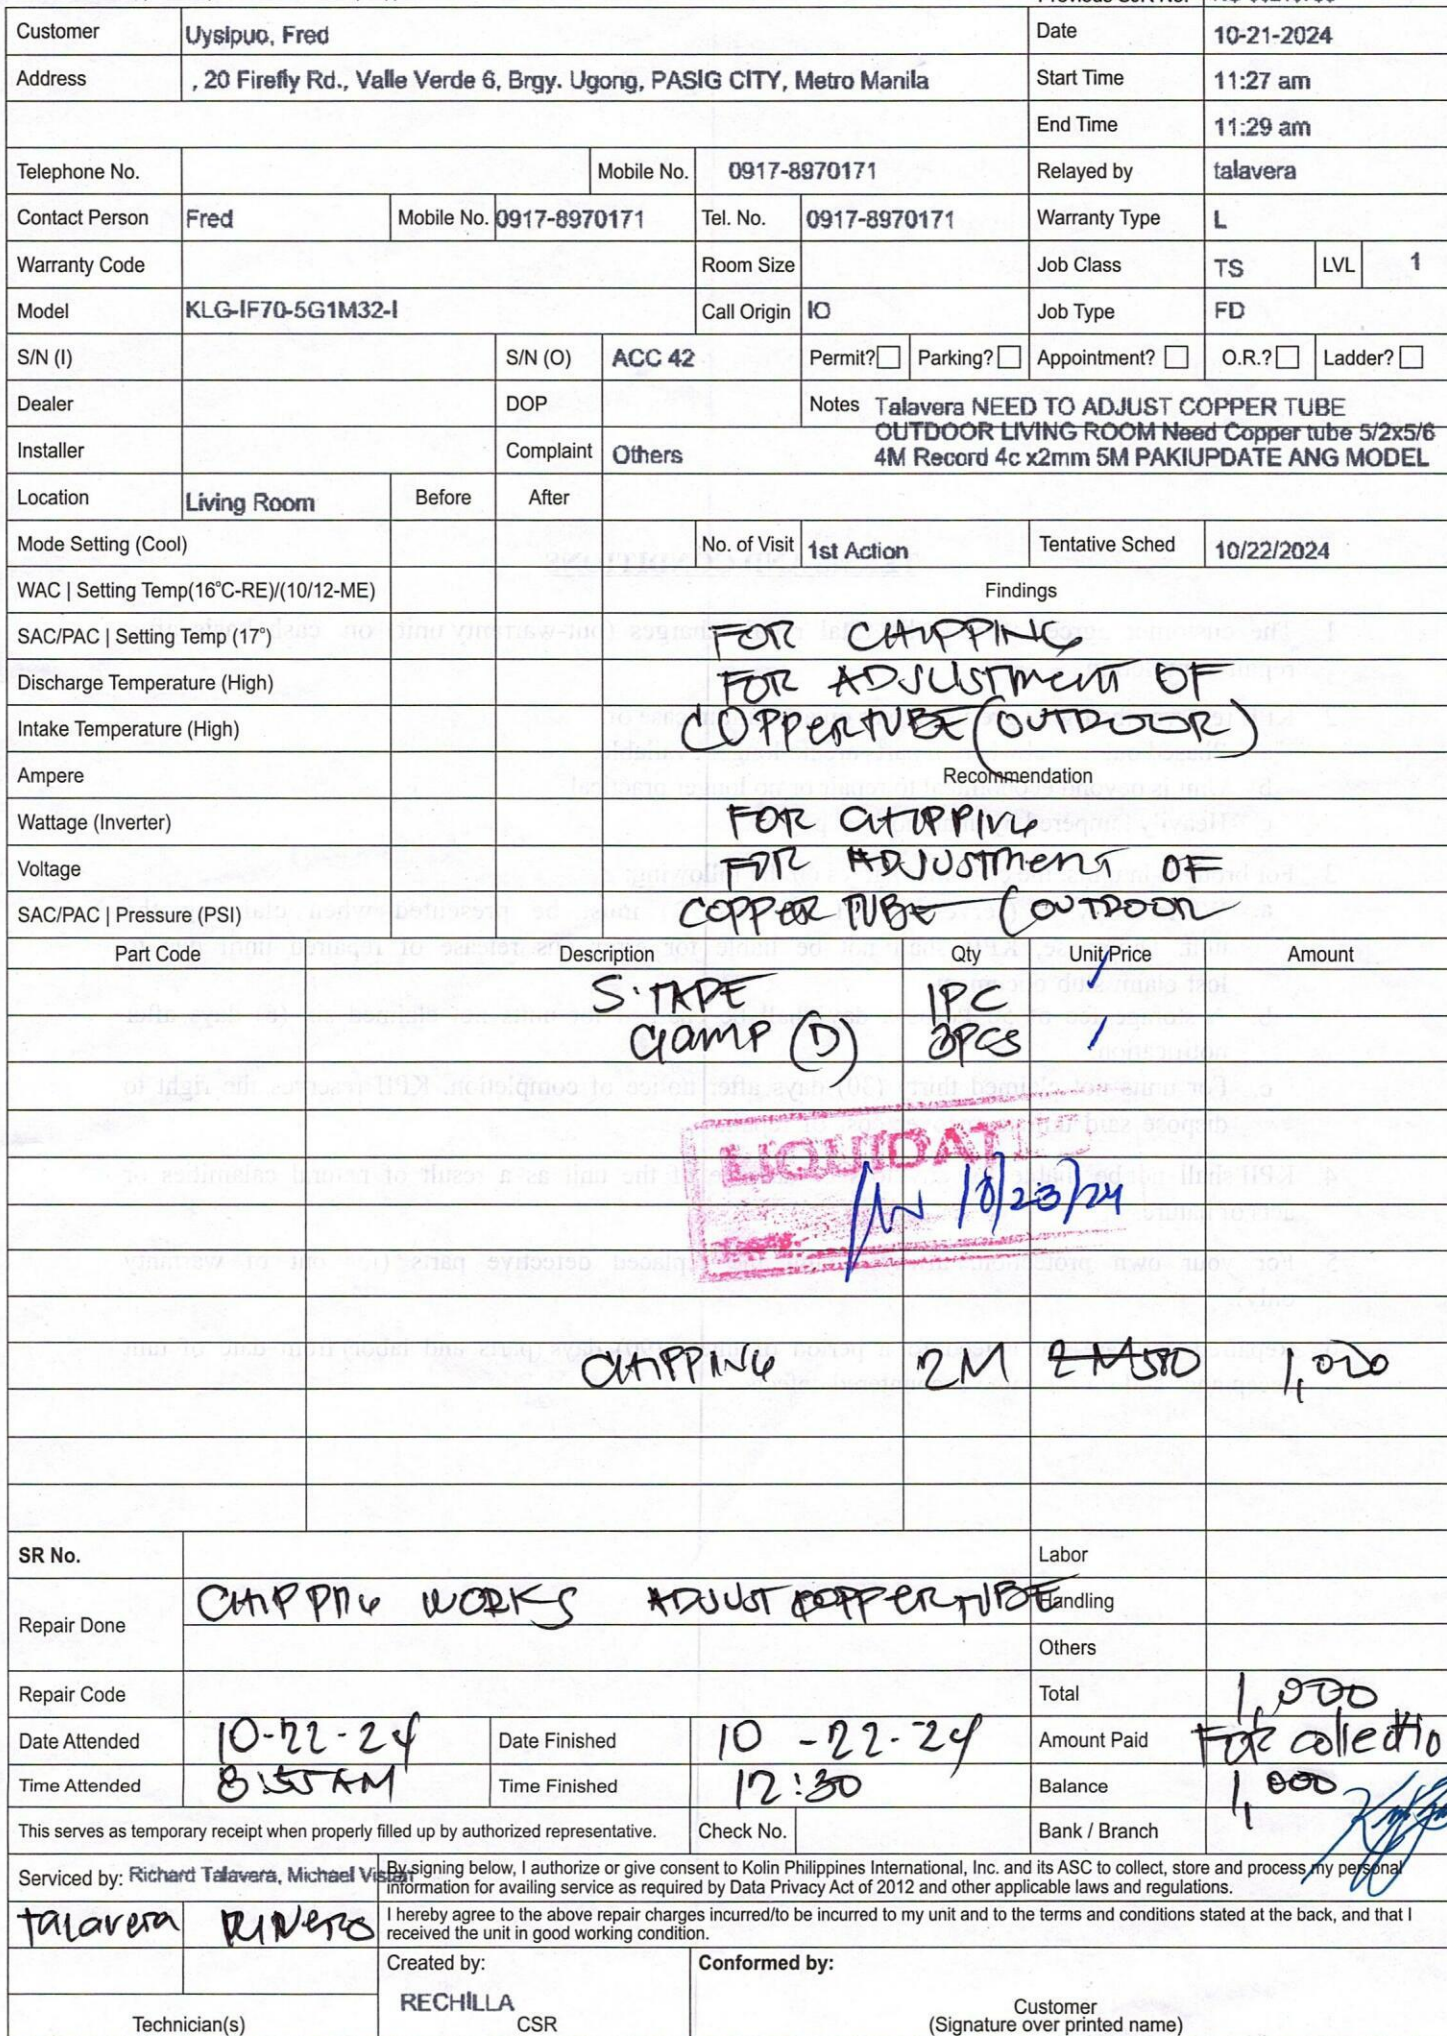 Customer Uysipuo, Fred Date 10-21-2024
Address , 20 Firefly Rd., Valle Verde 6, Brgy. Ugong, PASIG CITY, Metro Manila Start Time 11:27 am
End Time 11:29 am
Telephone No. Mobile No. 0917-8970171 Relayed by talavera
Contact Person Fred Mobile No. 0917-8970171 Tel. No. 0917-8970171 Warranty Type L
Warranty Code Room Size Job Class TS LVL 1
Model KLG-IF70-5G1M32-I Call Origin IO Job Type FD
S/N (I) S/N (O) ACC 42 Permit? Parking? Appointment? O.R.? Ladder?
Dealer DOP Notes Talavera NEED TO ADJUST COPPER TUBE
OUTDOOR LIVING ROOM Need Copper tube 5/2x5/6
Installer Complaint Others 4M Record 4c x2mm 5M PAKIUPDATE ANG MODEL
Location Living Room Before After
Mode Setting (Cool) No. of Visit 1st Action Tentative Sched 10/22/2024
WAC | Setting Temp(16°C-RE)/(10/12-ME) Findings
SAC/PAC | Setting Temp (17°) FOR CHIPPING
Discharge Temperature (High) FOR ADJUSTMENT OF
Intake Temperature (High) COPPERTUBE (OUTDOOR)
Ampere Recommendation
Wattage (Inverter) FOR CHIPPING
Voltage FOR ADJUSTMENT OF
SAC/PAC | Pressure (PSI) COPPER TUBE (OUTDOOR
Part Code Description Qty Unit Price Amount
S. TAPE 1PC
Clamp (D) 3PCS
LIQUIDATE
10/23/24
CHIPPING 2M 2M500 1,000
SR No. Labor
Repair Done CHIPPING WORKS ADJUST COPPERTUBE Handling
Others
Repair Code Total 1,000
Date Attended 10-22-24 Date Finished 10-22-24 Amount Paid FOR collectio
Time Attended 8:55 AM Time Finished 12:30 Balance 1,000
This serves as temporary receipt when properly filled up by authorized representative. Check No. Bank / Branch
Serviced by: Richard Talavera, Michael By signing below, I authorize or give consent to Kolin Philippines International, Inc. and its ASC to collect, store and process my personal
information for availing service as required by Data Privacy Act of 2012 and other applicable laws and regulations.
talavera I hereby agree to the above repair charges incurred/to be incurred to my unit and to the terms and conditions stated at the back, and that I
received the unit in good working condition.
Created by: Conformed by:
RECHILLA
Technician(s) CSR Customer
(Signature over printed name)